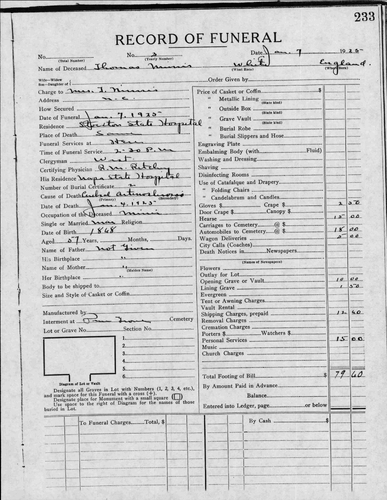 233
RECORD OF FUNERAL
No. No. 3 Date Jan. 7 1925
(Total Number) (Yearly Number)
Name of Deceased Thomas Minnis White England.
Wife—Widow
Son—Daughter of Order Given by
Charge to Mrs. T. Minnis
Address
Price of Casket or Coffin $
How Secured
" Metallic Lining
Date of Funeral Jan. 7, 1925
" Outside Box
Residence State Hospital
" Grave Vault
Place of Death Same
" Burial Robe
Funeral Services at
" Burial Slippers and Hose
Time of Funeral Service 2:30 P.M.
Engraving Plate
Clergyman West
Embalming Body (with Fluid)
Certifying Physician
Washing and Dressing
His Residence Napa State Hospital
Shaving
Number of Burial Certificate 2
Disinfecting Rooms
Cause of Death Cerebral Arteriosclerosis
Use of Catafalque and Drapery
(Primary) (Secondary)
" Folding Chairs
Date of Death Jan. 4, 1925
" Candelabrum and Candles
Occupation of the Deceased
Gloves $ Crape $ 2 50
Single or Married Mar Religion
Door Crape (Canopy) $
Date of Birth 1868
Hearse 15 00
Aged 57 Years, Months, Days.
Carriages to Cemetery @ $
Name of Father Not Given
Automobiles to Cemetery @ $ 18 00
His Birthplace "
Wagon Deliveries 5 00
Name of Mother "
City Calls (Coaches)
(Maiden Name)
Death Notices in Newspapers
Her Birthplace "
(Names of Newspapers)
Body to be shipped to
Flowers
Size and Style of Casket or Coffin
Outlay for Lot
Opening Grave or Vault 10 00
Lining Grave 1 50
Evergreen
Manufactured by
Tent or Awning Charges
Interment at Cemetery
Vault Rental
Lot or Grave No. Section No.
Shipping Charges, prepaid 12 60
1.
Removal Charges
2.
Cremation Charges
3.
Porters $ Watchers $
4.
Personal Services 15 00
5.
Music
6.
Church Charges
Diagram of Lot or Vault
Total Footing of Bill $ 79 60
Designate all Graves in Lot with Numbers (1, 2, 3, 4, etc.),
and mark space for this Funeral with a cross (+).
Designate place for Monument with a small square
Use space to right of Diagram for the names of those
buried in Lot.
By Amount Paid in Advance
Balance
Entered into Ledger, page or below $
$ By Cash $